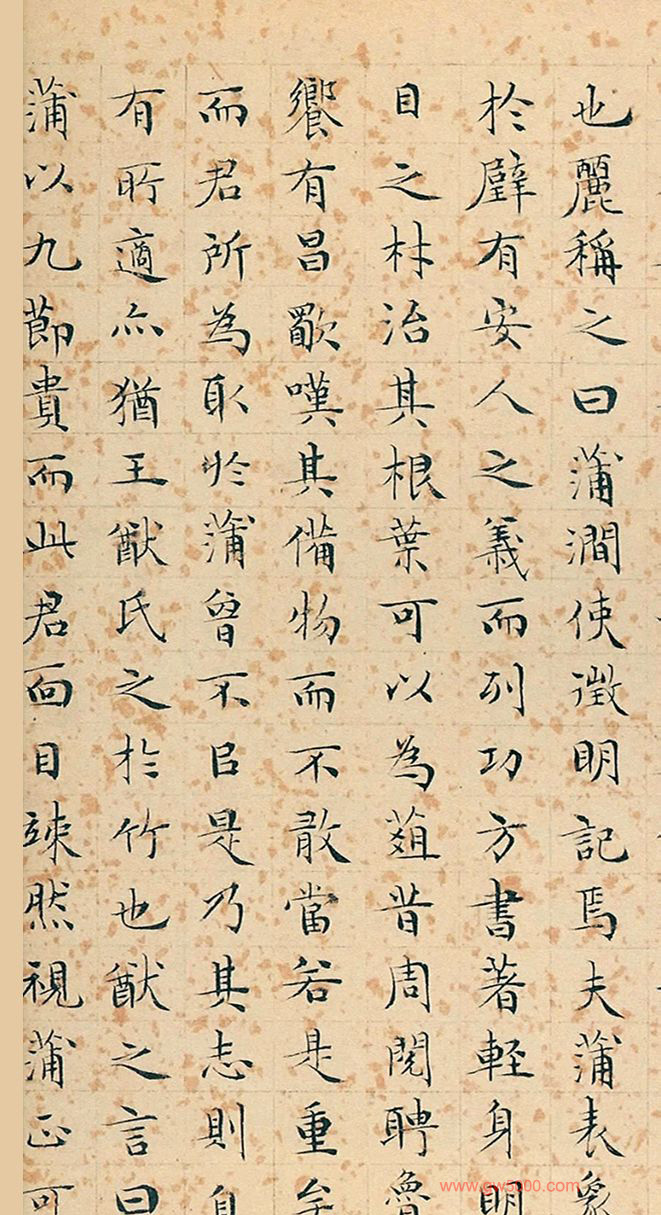 也麗稱之曰蒲澗使徵明記焉夫蒲表象
於璧有安人之義而列功方書著輕身明
目之材治其根葉可以為葅昔周閱聘魯
饗有昌歜嘆其備物而不敢當若是重矣
而君所為取於蒲曾不曰是乃其志則自
有所適亦猶王猷氏之於竹也猷之言曰
蒲以九節貴而此君面目竦然視蒲正可
www.gw5000.com